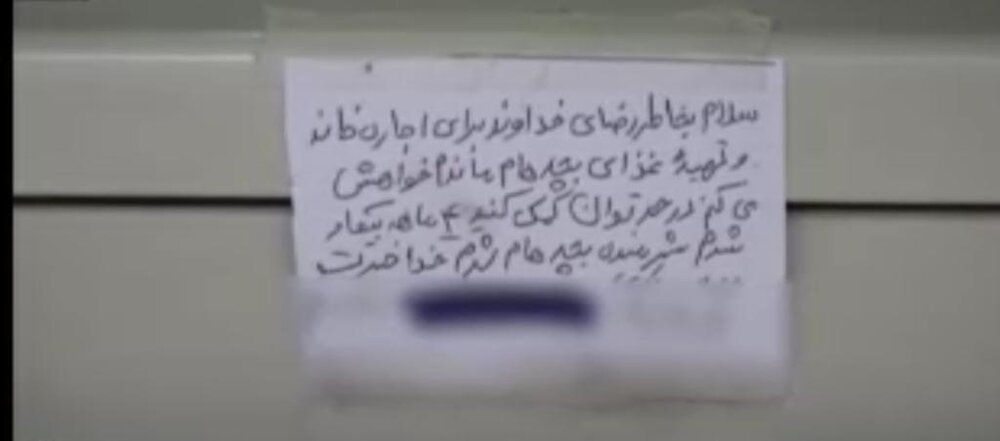 سلام بخاطر رضای خداوند برای اجاره خانه
و تهیهٔ غذای بچه هام ماندم خواهش
می کنم در حد توان کمک کنید ۴ ماهه بیکار
شدم شرمنده بچه هام شدم خدا خیرت